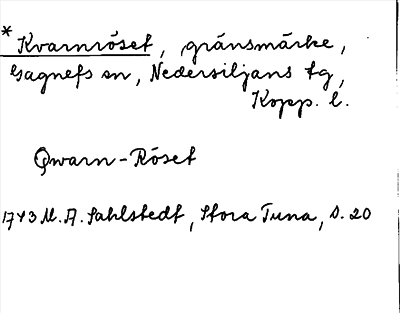 * Kvarnröset, gränsmärke,
Gagnefs sn, Nedersiljans tg,
Kopp. l.
Qwarn-Röset
1743 M. A. Sahlstedt, Stora Tuna, s. 20